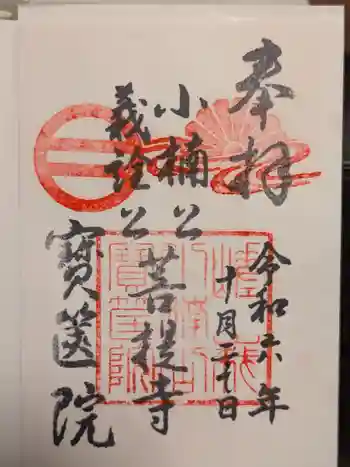 奉拝
令和六年
十月二十七日
小楠公
義詮公
菩提寺
寶筐院